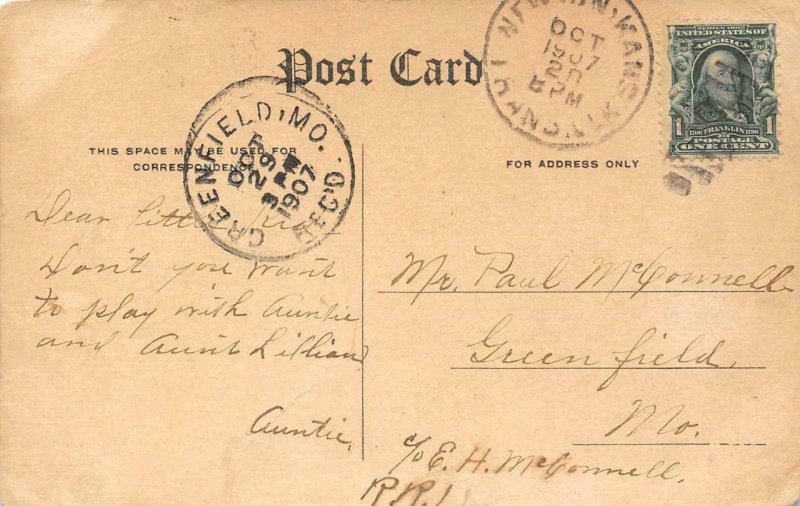 Post Card
THIS SPACE MAY BE USED FOR
CORRESPONDENCE
FOR ADDRESS ONLY
GREENFIELD, MO. REC'D.
OCT
29
3 PM
1907
KANS.
TRANSIT
OCT
1907
PM
SERIES 1902
UNITED STATES OF
AMERICA
1 1706 FRANKLIN 1790 1
POSTAGE
ONE CENT
Dear little
Don't you want
to play with Auntie
and Aunt Lillian
Auntie.
Mr. Paul McConnell
Greenfield,
Mo.
c/o E. H. McConnell.
R.R.1